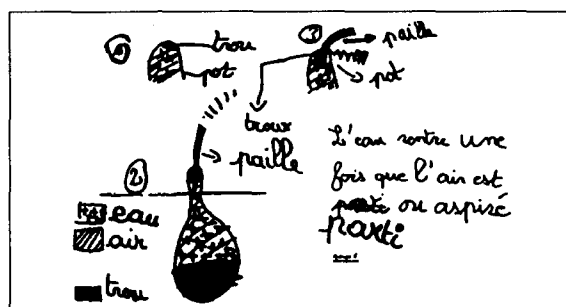 ① trou
pot
③ paille
pot
troux
paille
②
eau
air
trou
L'eau rentre une
fois que l'air est
ou aspiré
parti